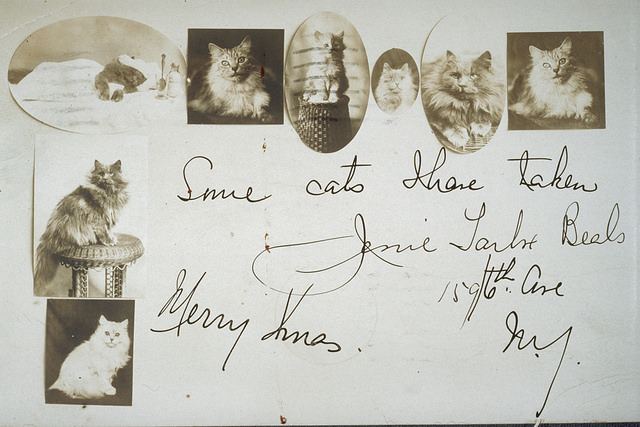 Some cats I have taken
Jessie Tarbox Beals
159 6th. Ave
N.Y.
Merry Xmas.